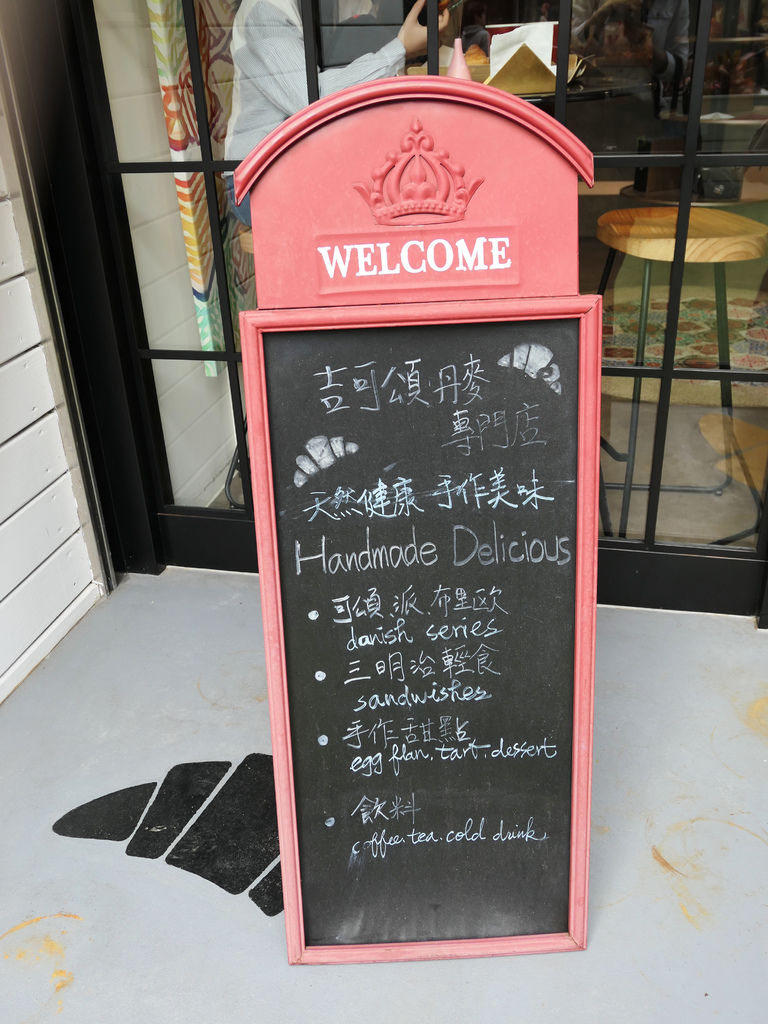 WELCOME
吉可頌.丹麥
專門店
天然健康 手作美味
Handmade Delicious
• 可頌.派.布里歐
danish series
• 三明治輕食
sandwishes
• 手作甜點
egg flan. tart. dessert
• 飲料
coffee. tea. cold drink.